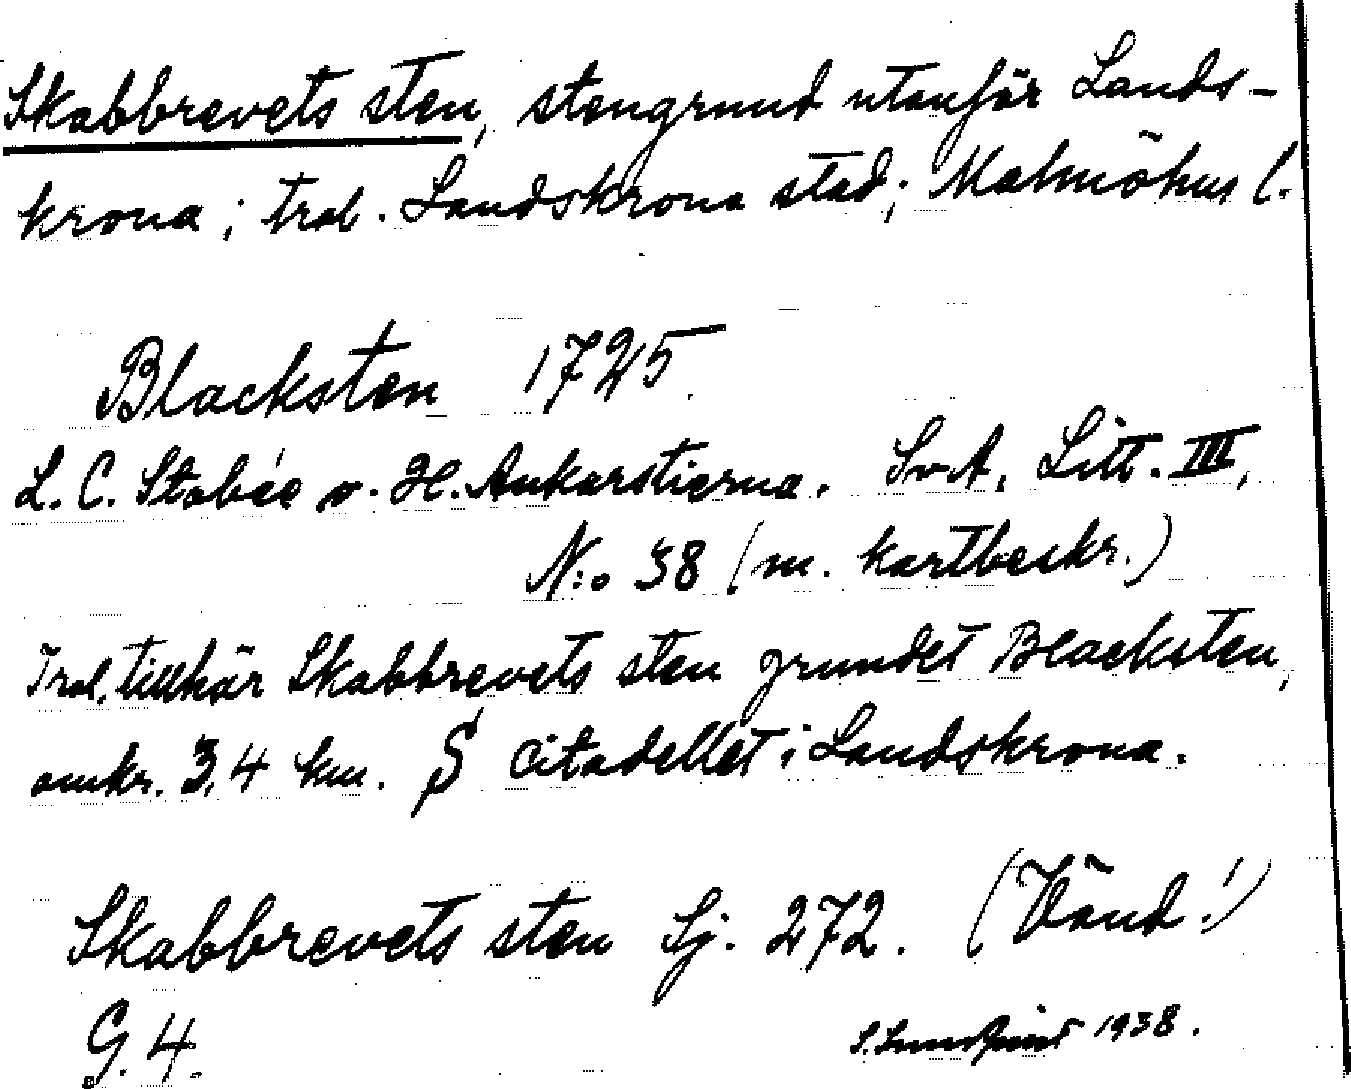 Skabbrevets sten, stengrund utanför Lands-
krona; trol. Landskrona stad; Malmöhus l.
Blacksten 1725
L. C. Stobée o. H. Ankarstierna. SvA, Litt. III,
N:o 38 (m. kartbeskr.)
Trol. tillhör Skabbrevets sten grundet Blacksten,
omkr. 3,4 km. S citadellet i Landskrona.
Skabbrevets sten Sj. 272. (Vänd!)
G. 4.
S. Lundquist 1938.